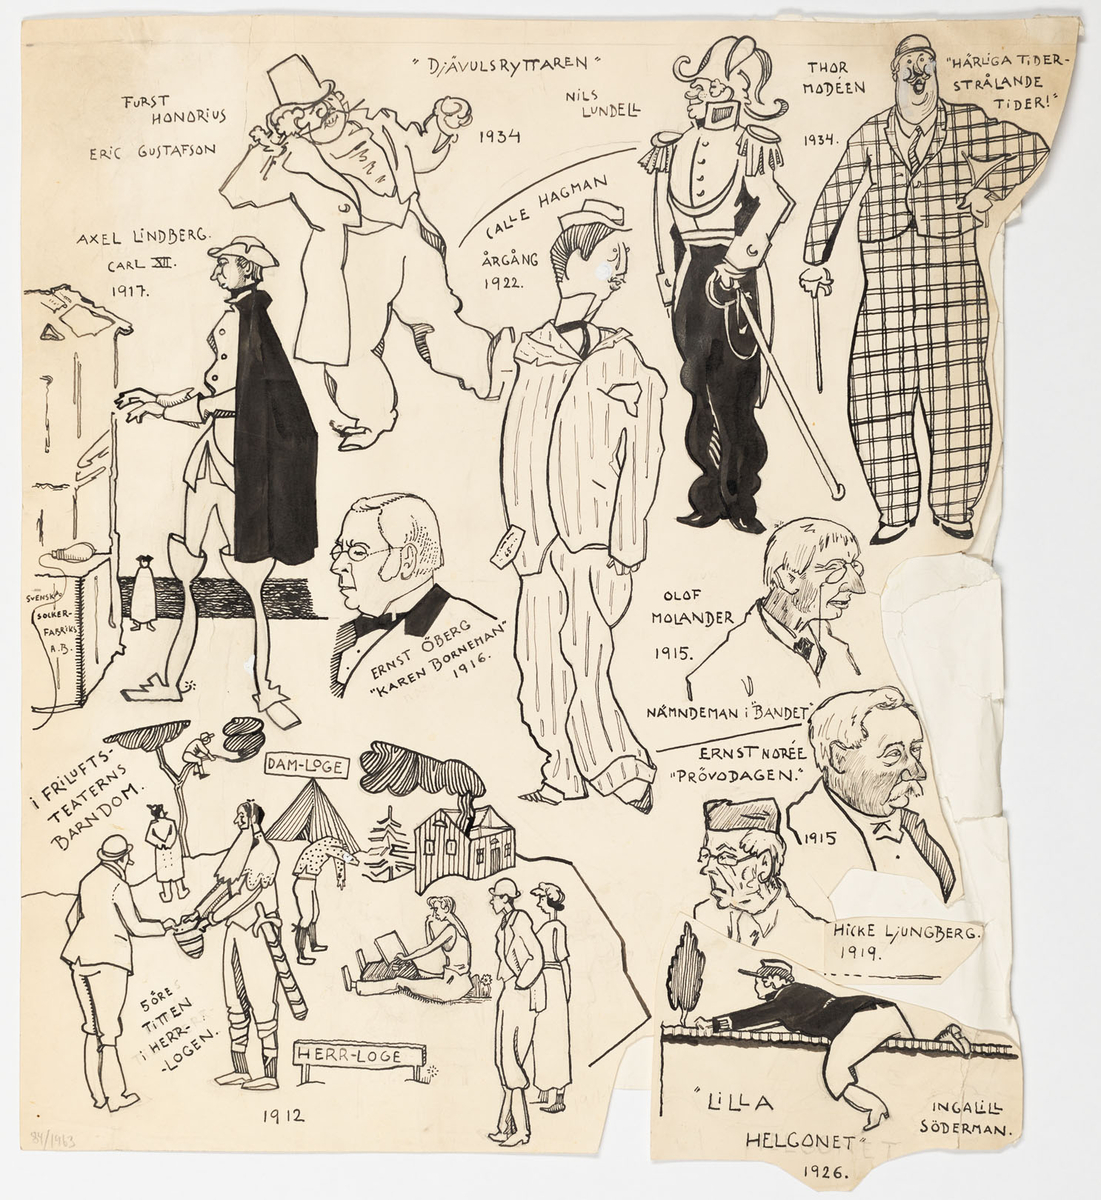 "DJÄVULSRYTTAREN"
FURST
HONORIUS
ERIC GUSTAFSON
1934
NILS
LUNDELL
THOR
MODÉEN
1934.
"HÄRLIGA TIDER-
STRÅLANDE
TIDER!"
CALLE HAGMAN
ÅRGÅNG
1922.
AXEL LINDBERG.
CARL XII.
1917.
SVENSKA
SOCKER-
FABRIKS
A.B.
ERNST ÖBERG
"KAREN BORNEMAN"
1916.
OLOF
MOLANDER
1915.
NÄMNDEMAN i "BANDET"
ERNST NORÉE
"PRÖVODAGEN."
1915
HICKE LJUNGBERG.
1919.
I FRILUFTS-
TEATERNS
BARNDOM.
DAM-LOGE
5 ÖRE
TITTEN
I HERR-
-LOGEN.
HERR-LOGE
1912
"LILLA
HELGONET"
1926.
INGALILL
SÖDERMAN.
84/1963